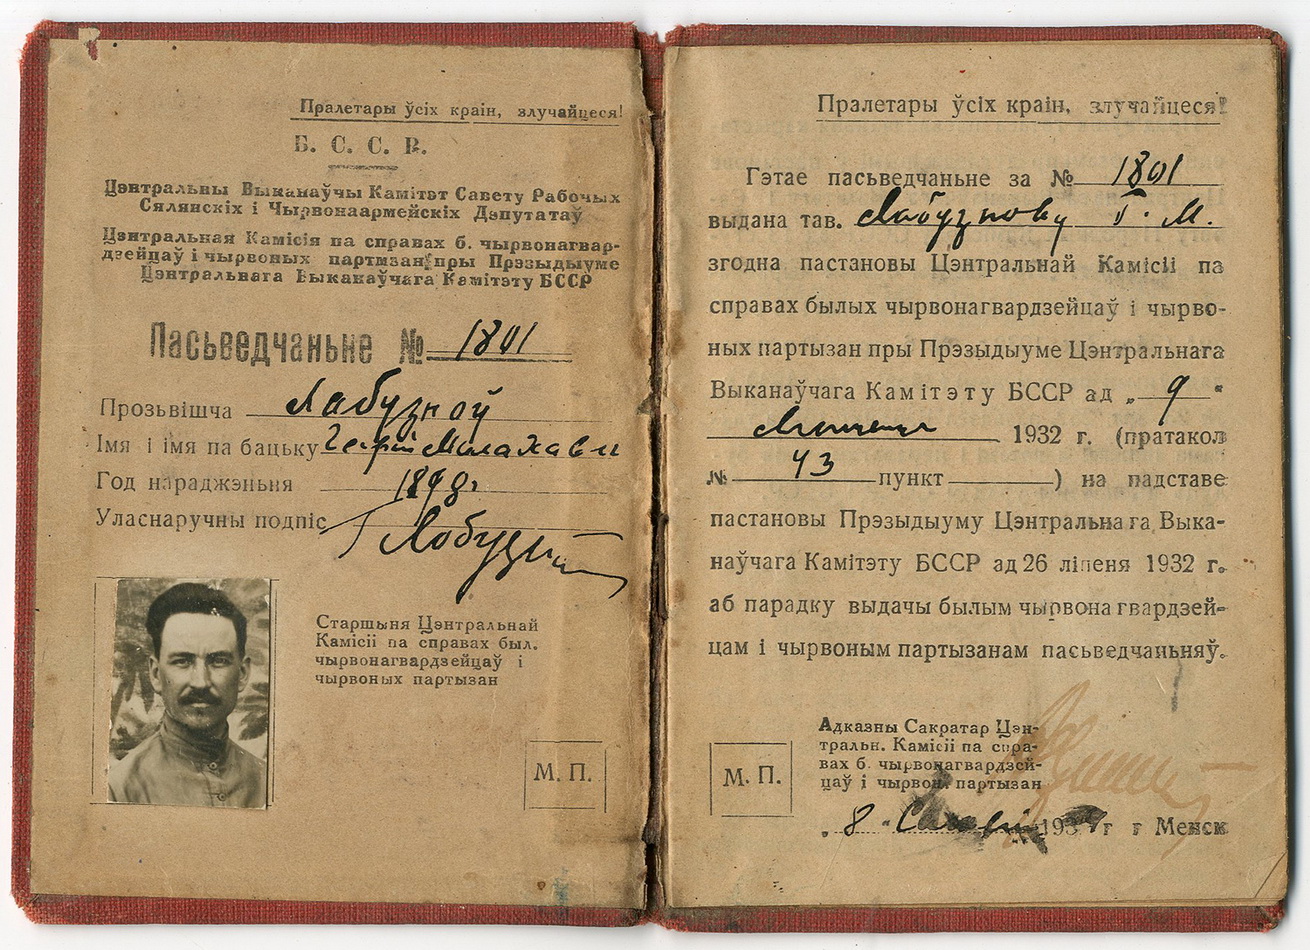 Пралетары ўсіх краін, злучайцеся!
Б. С. С. Р.
Цэнтральны Выканаўчы Камітэт Савету Рабочых
Сялянскіх і Чырвонаармейскіх Дэпутатаў
Цэнтральная Камісія па справах б. чырвонагвар-
дзейцаў і чырвоных партызан пры Прэзыдыуме
Цэнтральнага Выканаўчага Камітэту БССР
Пасьведчаньне № 1801
Прозьвішча Лабузноў
Імя і імя па бацьку
Год нараджэньня 1898 г
Уласнаручны подпіс
Старшыня Цэнтральнай
Камісіі па справах был.
чырвонагвардзейцаў і
чырвоных партызан
М. П.
Пралетары ўсіх краін, злучайцеся!
Гэтае пасьведчаньне за № 1801
выдана тав. Лабузнову Г. М.
згодна пастановы Цэнтральнай Камісіі па
справах былых чырвонагвардзейцаў і чырво-
ных партызан пры Прэзыдыуме Цэнтральнага
Выканаўчага Камітэту БССР ад „ 9 "
1932 г. (пратакол
№ 43 пункт ) на падставе
пастановы Прэзыдыуму Цэнтральнага Выка-
наўчага Камітэту БССР ад 26 ліпеня 1932 г.
аб парадку выдачы былым чырвонагвардзей-
цам і чырвоным партызанам пасьведчаньняў.
Адказны Сакратар Цэн-
тральн. Камісіі па спра-
вах б. чырвонагвардзей-
цаў і чырвон. партызан
М. П.
„ 8 " г. Менск